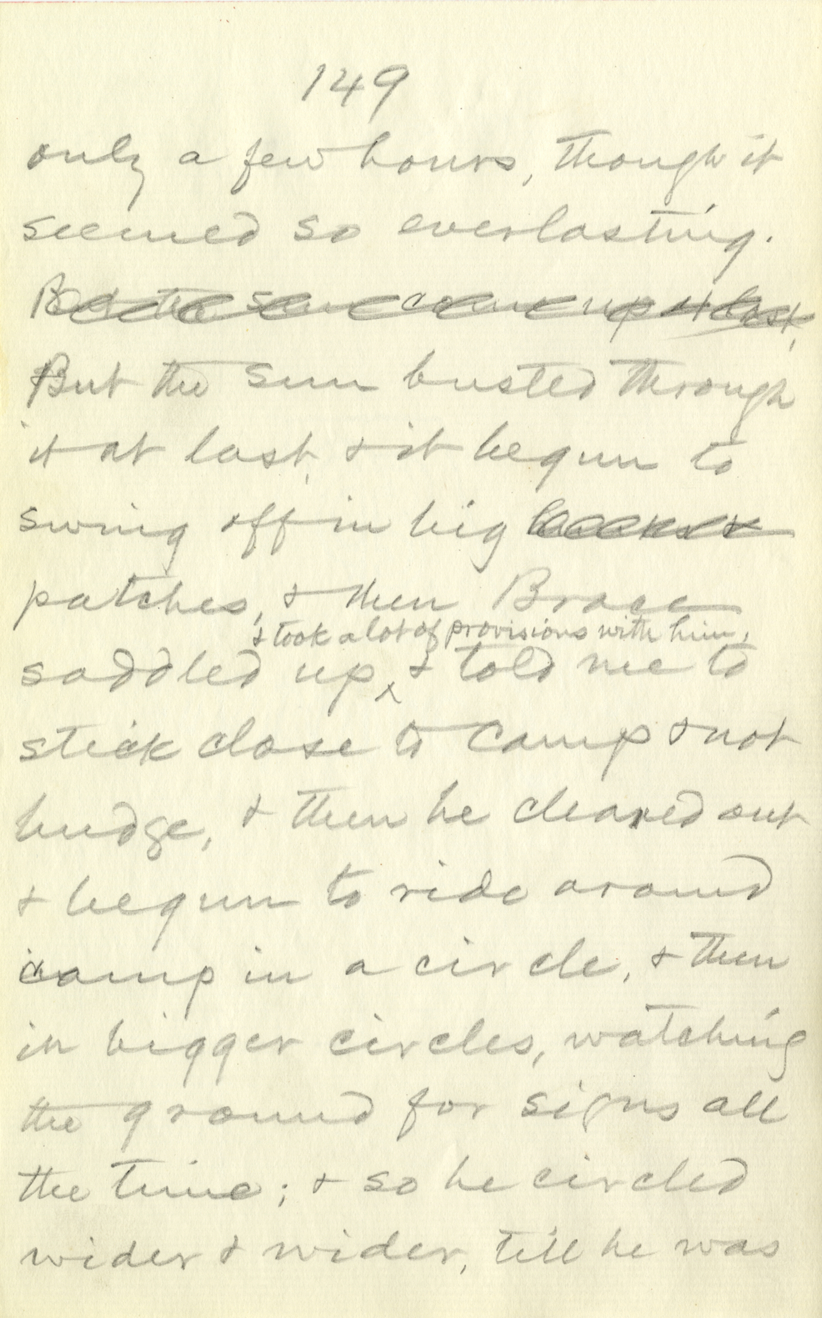 149
only a few hours, though it
seemed so everlasting.
But the sun come up at last,
But the sun busted through
it at last, & it begun to
swing off in big
patches, & then Brace
& took a lot of provisions with him,
saddled up ‸ & told me to
stick close to camp & not
budge, & then he cleared out
& begun to ride around
camp in a circle, & then
in bigger circles, watching
the ground for signs all
the time; & so he circled
wider & wider, till he was